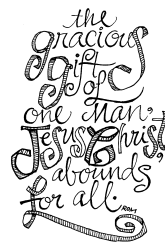 the
gracious
gift
of
one man,
Jesus Christ,
abounds
for all.